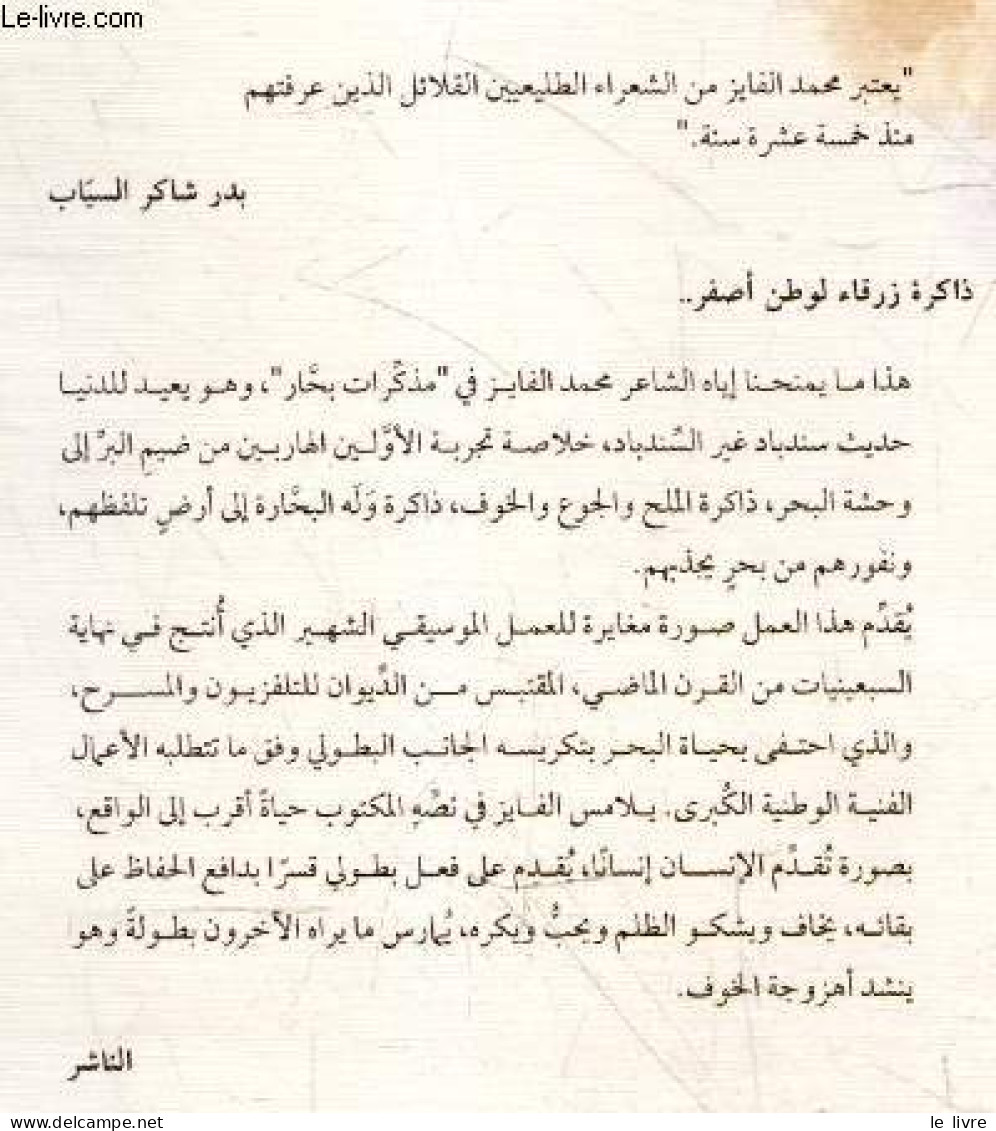 Le-livre.com
"يعتبر محمد الفايز من الشعراء الطليعيين القلائل الذين عرفتهم
منذ خمسة عشرة سنة."
بدر شاكر السيّاب
ذاكرة زرقاء لوطن أصفر..
هذا ما يمنحنا إياه الشاعر محمد الفايز في "مذكِّرات بحَّار"، وهو يعيد للدنيا
حديث سندباد غير السِّندباد، خلاصة تجربة الأوَّلين الهاربين من ضيمِ البرِّ إلى
وحشة البحر، ذاكرة الملح والجوع والخوف، ذاكرة وَلَه البحَّارة إلى أرضٍ تلفظهم،
ونفورهم من بحرٍ يجذبهم.
يُقدِّم هذا العمل صورة مغايرة للعمل الموسيقي الشهير الذي أُنتج في نهاية
السبعينيات من القرن الماضي، المقتبس من الدِّيوان للتلفزيون والمسرح،
والذي احتفى بحياة البحر بتكريسه الجانب البطولي وفق ما تتطلبه الأعمال
الفنية الوطنية الكُبرى. يلامس الفايز في نصِّهِ المكتوب حياةً أقرب إلى الواقع،
بصورة تُقدِّم الإنسان إنسانًا، يُقدم على فعل بطولي قسرًا بدافع الحفاظ على
بقائه، يخاف ويشكو الظلم ويحبُّ ويكره، يُمارس ما يراه الآخرون بطولةً وهو
ينشد أهزوجة الخوف.
الناشر
le livre